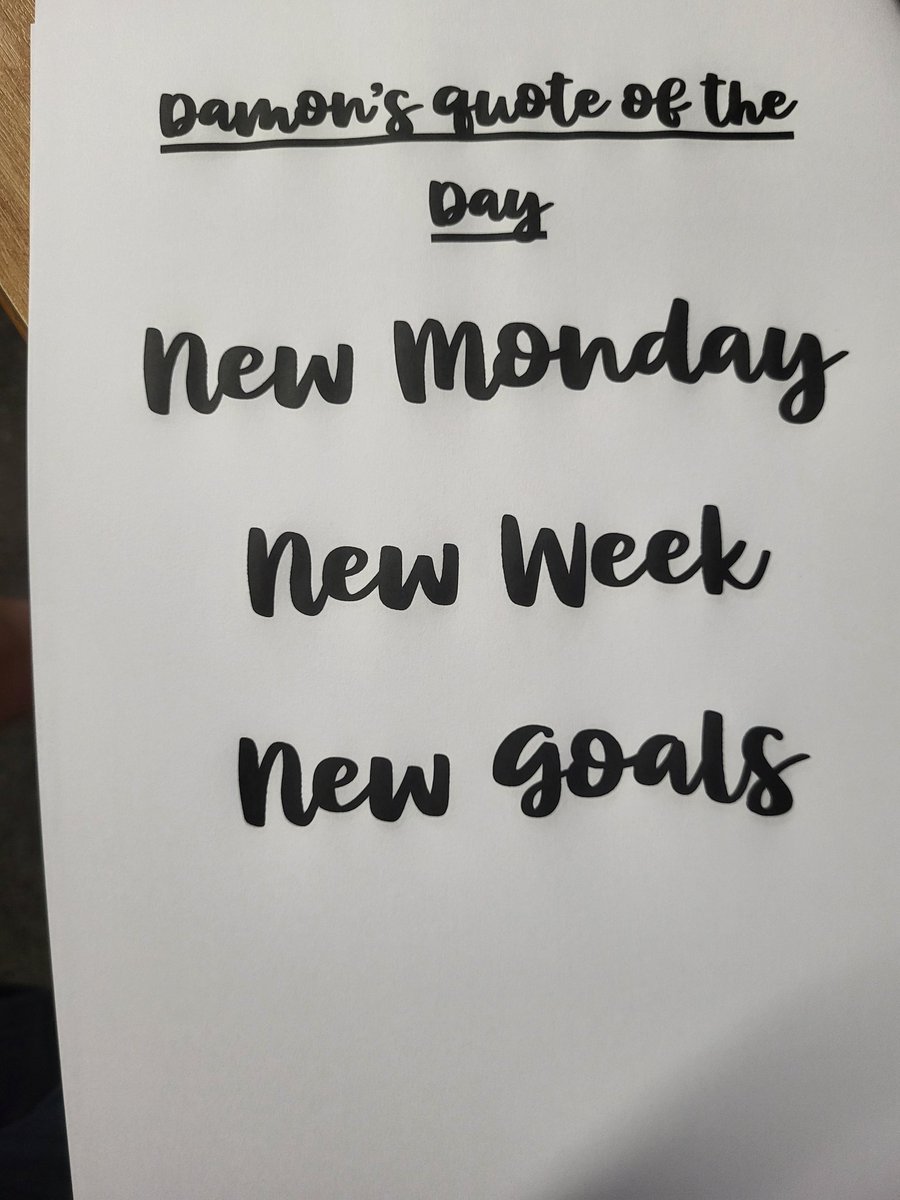 Damon's quote of the
Day
New Monday
New Week
New Goals